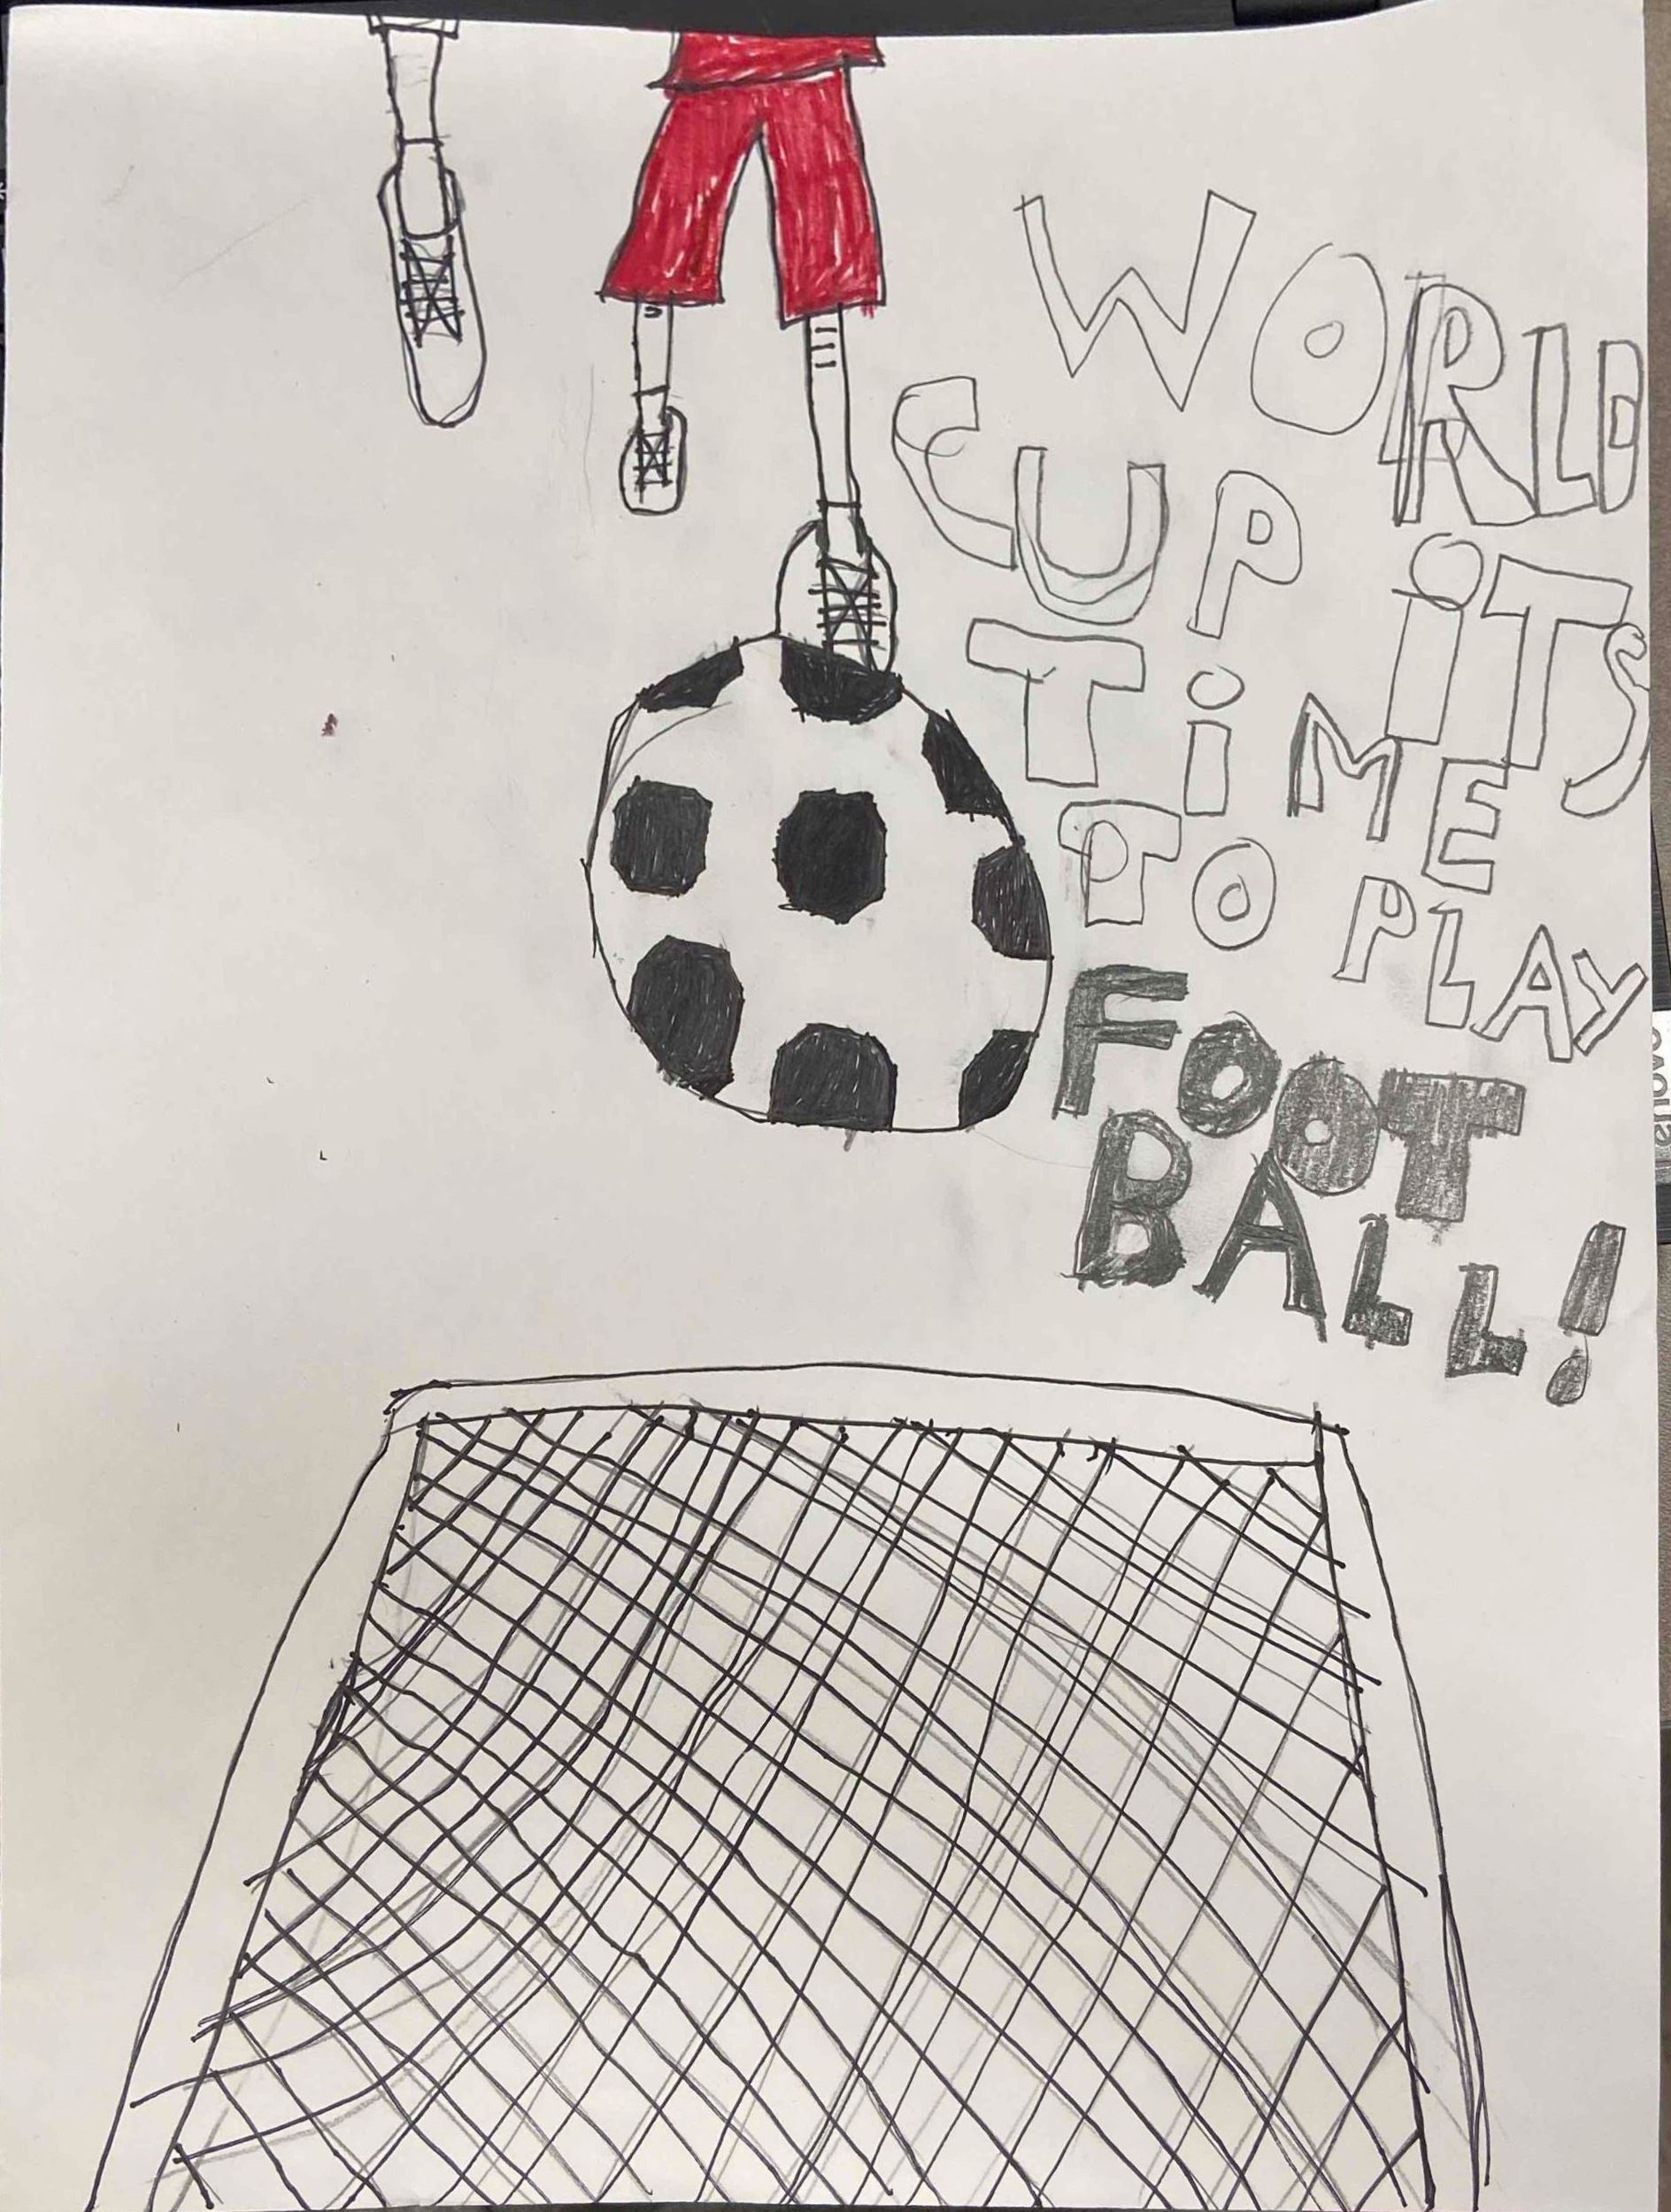 WORLD
CUP iTS
TiME
TO PLAY
FOOT
BALL!